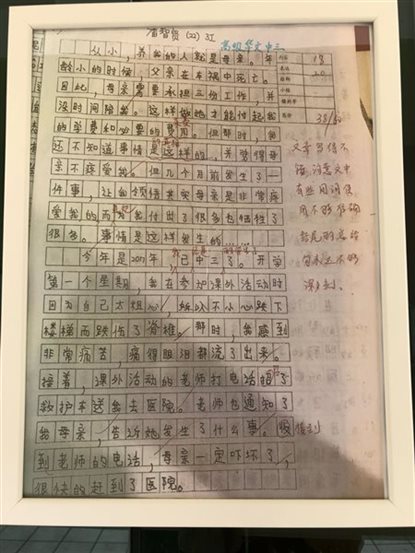 智贤 (22) 3工
高级华文中三
从小，养我的人就是母亲。年
龄小的时候，父亲在车祸中死亡。
因此，母亲需要承担三份工作，并
没时间陪我。这样她才能付起我
的学费和必要的费用。但那时，我
还不知道事情是这样的，并觉得母
亲不疼爱我。但几个月前发生了一
件事，让我领悟其实母亲是非常疼
爱我的而为我付出了很多也牺牲了
很多。事情是这样发生的……
今年是2017年，已中三了。开学
第一个星期，我在参加课外活动时
因为自己太粗心，所以不小心跌下
楼梯而跌伤了脊椎。那时，我感到
非常痛苦，痛得眼泪都流了出来。
接着，课外活动的老师打电话招了
救护车送我去医院。老师也通知了
我母亲，告诉她发生了什么事。接到
到老师的电话，母亲一定吓坏了，
很快的赶到了医院。
18
20
38/60
文章写得不
错，注意文中
有些用词使
用不够准确
结尾的总结
句永远不够
深刻。